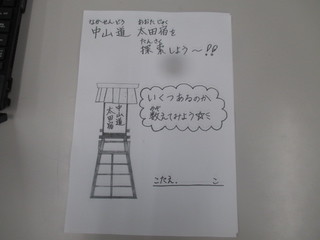 なかせんどう おおたじゅく
中山道 太田宿を
たんさく
探索しよう〜!!
中山道
太田宿
いくつあるのか、
数えてみよう☆
こたえ. こ